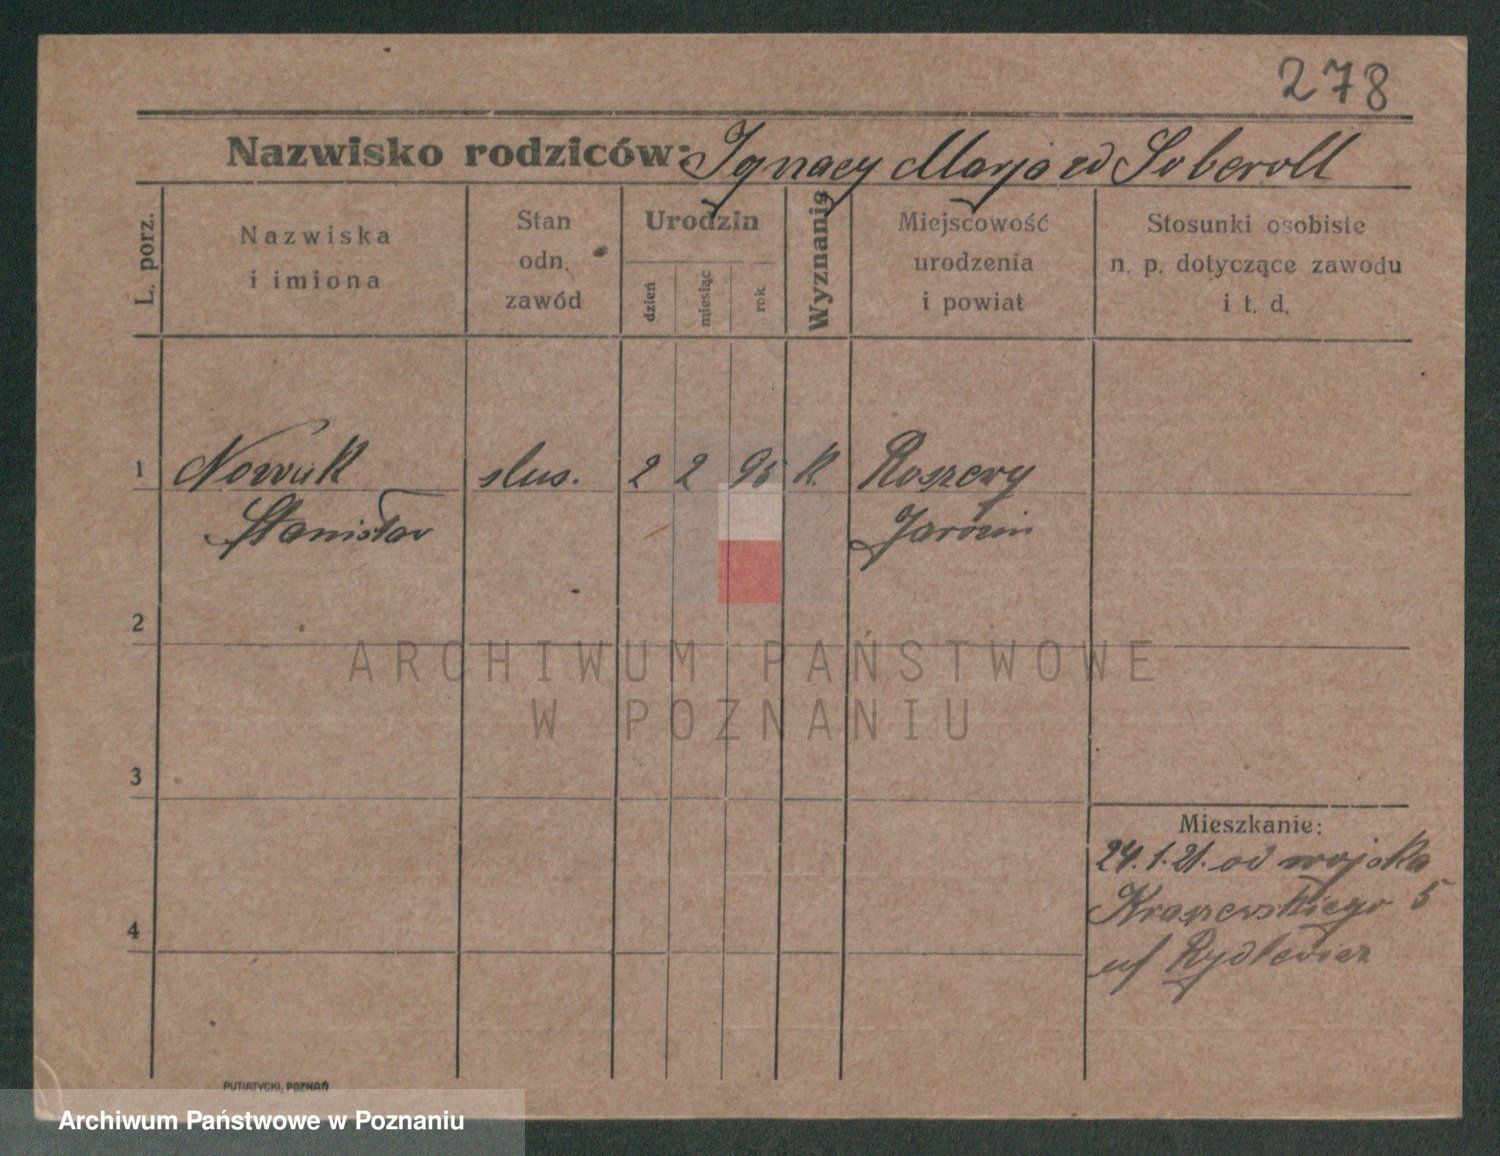 278
Nazwisko rodziców: Ignacy Marja zd Soberoll
L. porz.
Nazwiska
i imiona
Stan
odn.
zawód
Urodzin
dzień
miesiąc
rok.
Wyznanie
Miejscowość
urodzenia
i powiat
Stosunki osobiste
n. p. dotyczące zawodu
i t. d.
1 Nowak slus. 2 2 95 k. Roszewy
Stanisław Jarocin
2
ARCHIWUM PAŃSTWOWE
W POZNANIU
3
Mieszkanie:
24.1.21. od wojska
Kraszewskiego 5
4
Rydlewicz
PUTIATYCKI, POZNAŃ
Archiwum Państwowe w Poznaniu